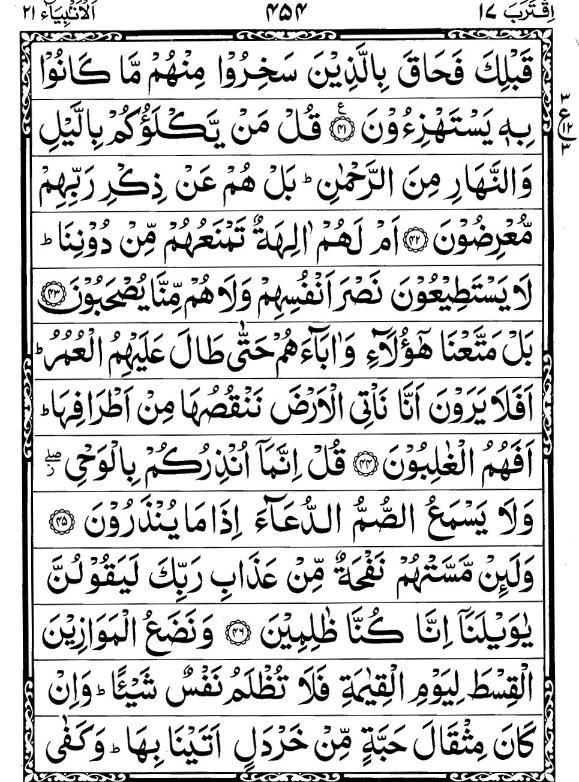 اِقْتَرَبَ ١٧ ۴۵۴ اَلْاَنْۢبِيَآء ٢١
قَبْلِكَ فَحَاقَ بِالَّذِيْنَ سَخِرُوْا مِنْهُمْ مَّا كَانُوْا
بِهٖ يَسْتَهْزِءُوْنَ ﴿۴۱﴾ ع قُلْ مَنْ يَّكْلَؤُكُمْ بِالَّيْلِ
٣ ع ١٢ ٣
وَالنَّهَارِ مِنَ الرَّحْمٰنِ ؕ بَلْ هُمْ عَنْ ذِكْرِ رَبِّهِمْ
مُّعْرِضُوْنَ ﴿۴۲﴾ اَمْ لَهُمْ اٰلِهَةٌ تَمْنَعُهُمْ مِّنْ دُوْنِنَا ؕ
لَا يَسْتَطِيْعُوْنَ نَصْرَ اَنْفُسِهِمْ وَلَا هُمْ مِّنَّا يُصْحَبُوْنَ ﴿۴۳﴾
بَلْ مَتَّعْنَا هٰٓؤُلَآءِ وَاٰبَآءَهُمْ حَتّٰى طَالَ عَلَيْهِمُ الْعُمُرُ ؕ
اَفَلَا يَرَوْنَ اَنَّا نَاْتِى الْاَرْضَ نَنْقُصُهَا مِنْ اَطْرَافِهَا ؕ
اَفَهُمُ الْغٰلِبُوْنَ ﴿۴۴﴾ قُلْ اِنَّمَآ اُنْذِرُكُمْ بِالْوَحْىِ ۖ ز
وَلَا يَسْمَعُ الصُّمُّ الدُّعَآءَ اِذَا مَا يُنْذَرُوْنَ ﴿۴۵﴾
وَلَئِنْ مَّسَّتْهُمْ نَفْحَةٌ مِّنْ عَذَابِ رَبِّكَ لَيَقُوْلُنَّ
يٰوَيْلَنَآ اِنَّا كُنَّا ظٰلِمِيْنَ ﴿۴۶﴾ وَنَضَعُ الْمَوَازِيْنَ
الْقِسْطَ لِيَوْمِ الْقِيٰمَةِ فَلَا تُظْلَمُ نَفْسٌ شَيْئًا ؕ وَاِنْ
كَانَ مِثْقَالَ حَبَّةٍ مِّنْ خَرْدَلٍ اَتَيْنَا بِهَا ؕ وَكَفٰى